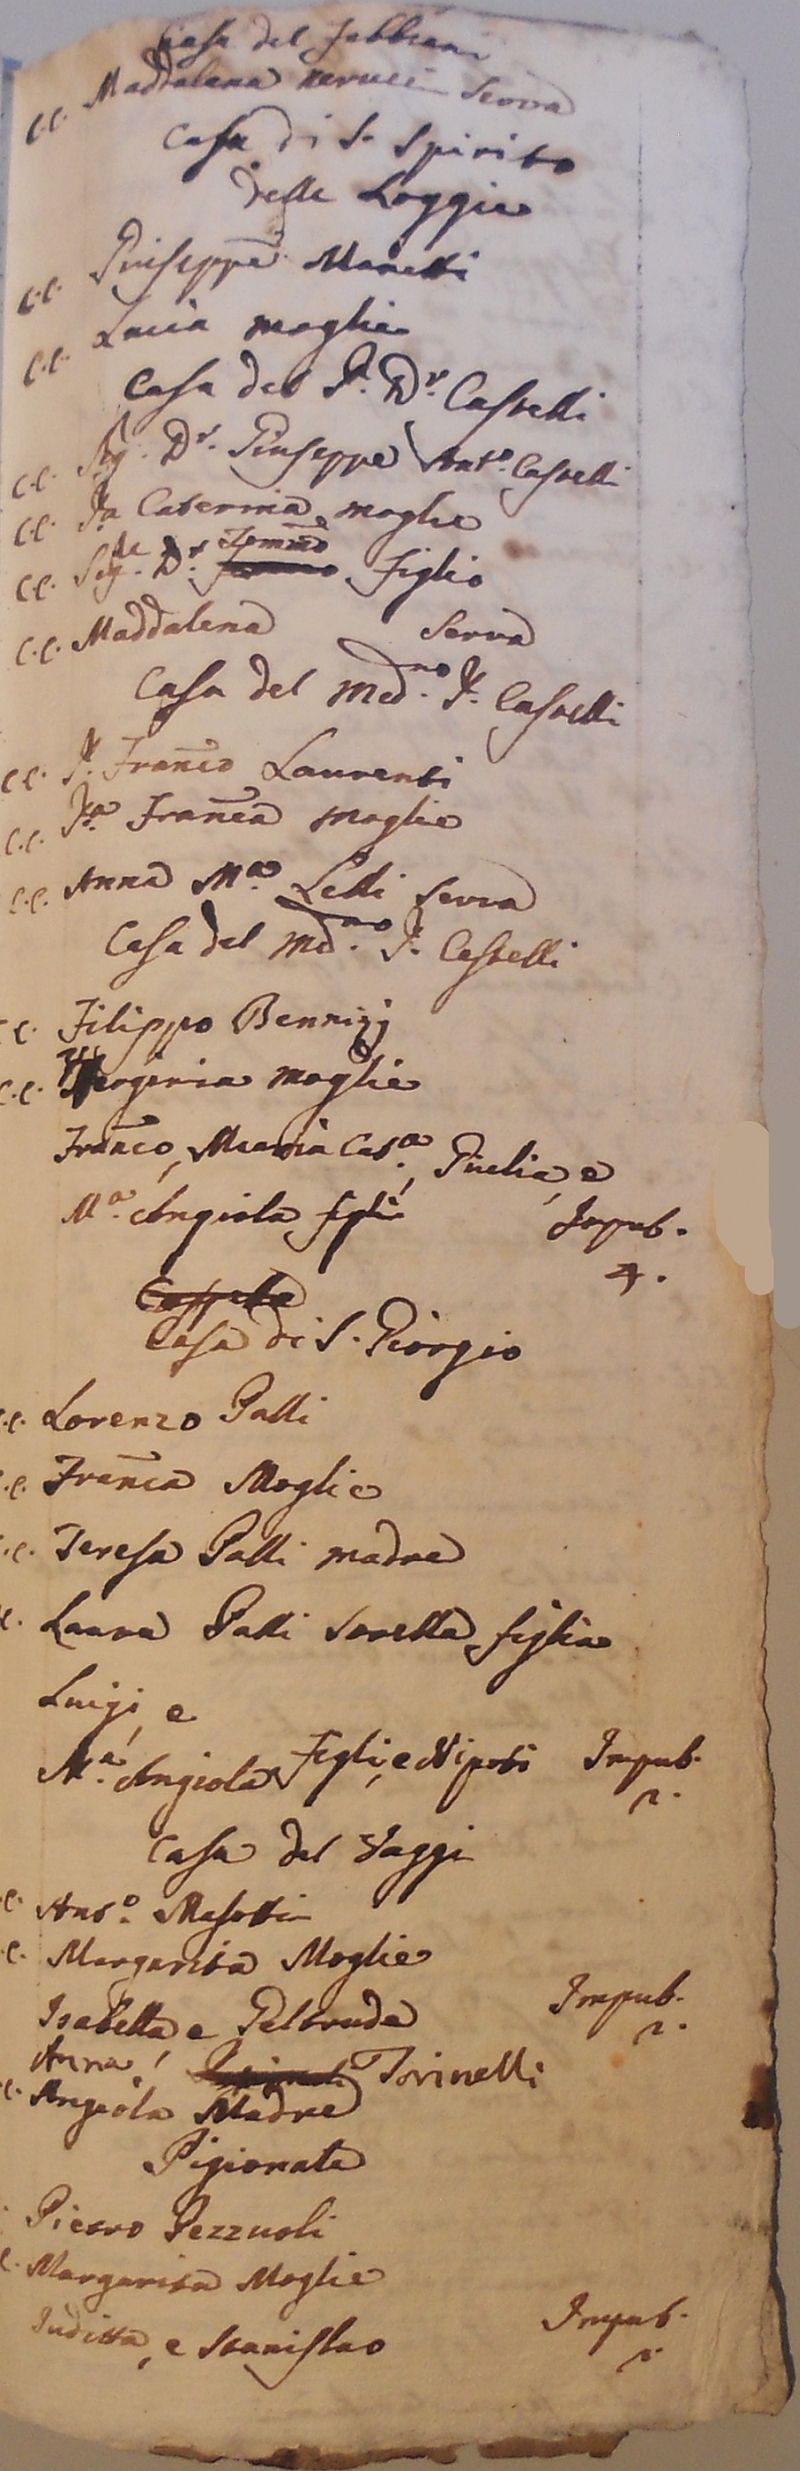 Casa del Fabbrini
C.C. Maddalena Nerucci Serva
Casa di S. Spirito
delle Loggie
C.C. Giuseppe Manetti
C.C. Lucia moglie
Casa del S.r D.r Castelli
C.C. Sig. D.r Giuseppe Ant.o Castelli
C.C. S.a Caterina moglie
C.C. Sig. D.r Tommo figlio
C.C. Maddalena Serva
Casa del Med.no S. Castelli
C.C. S. Franco Laurenti
C.C. S.a Franca moglie
C.C. Anna M.a Lelli Serva
Casa del Med.no S. Castelli
C.C. Filippo Bennizj
C.C. Verginia moglie
Franco, Maria Cat.a, Giulia, e
M.a Angiola figli Impub.
4.
Casa di S. Giorgio
C.C. Lorenzo Palli
C.C. Franca Moglie
C.C. Teresa Palli madre
C. Laura Palli Sorella figlia
Luigi, e
M.a Angiola Figli, e Nipoti Impub.
2.
Casa del Vaggi
C. Ant.o Masotti
C.C. Margarita Moglie
Isabella, e Geltruda Impub.
2.
Anna Torinelli
C. Angiola Madre
Pigionata
Pietro Pezzuoli
C. Margarita Moglie
Juditta, e Stanislao Impub.
2.